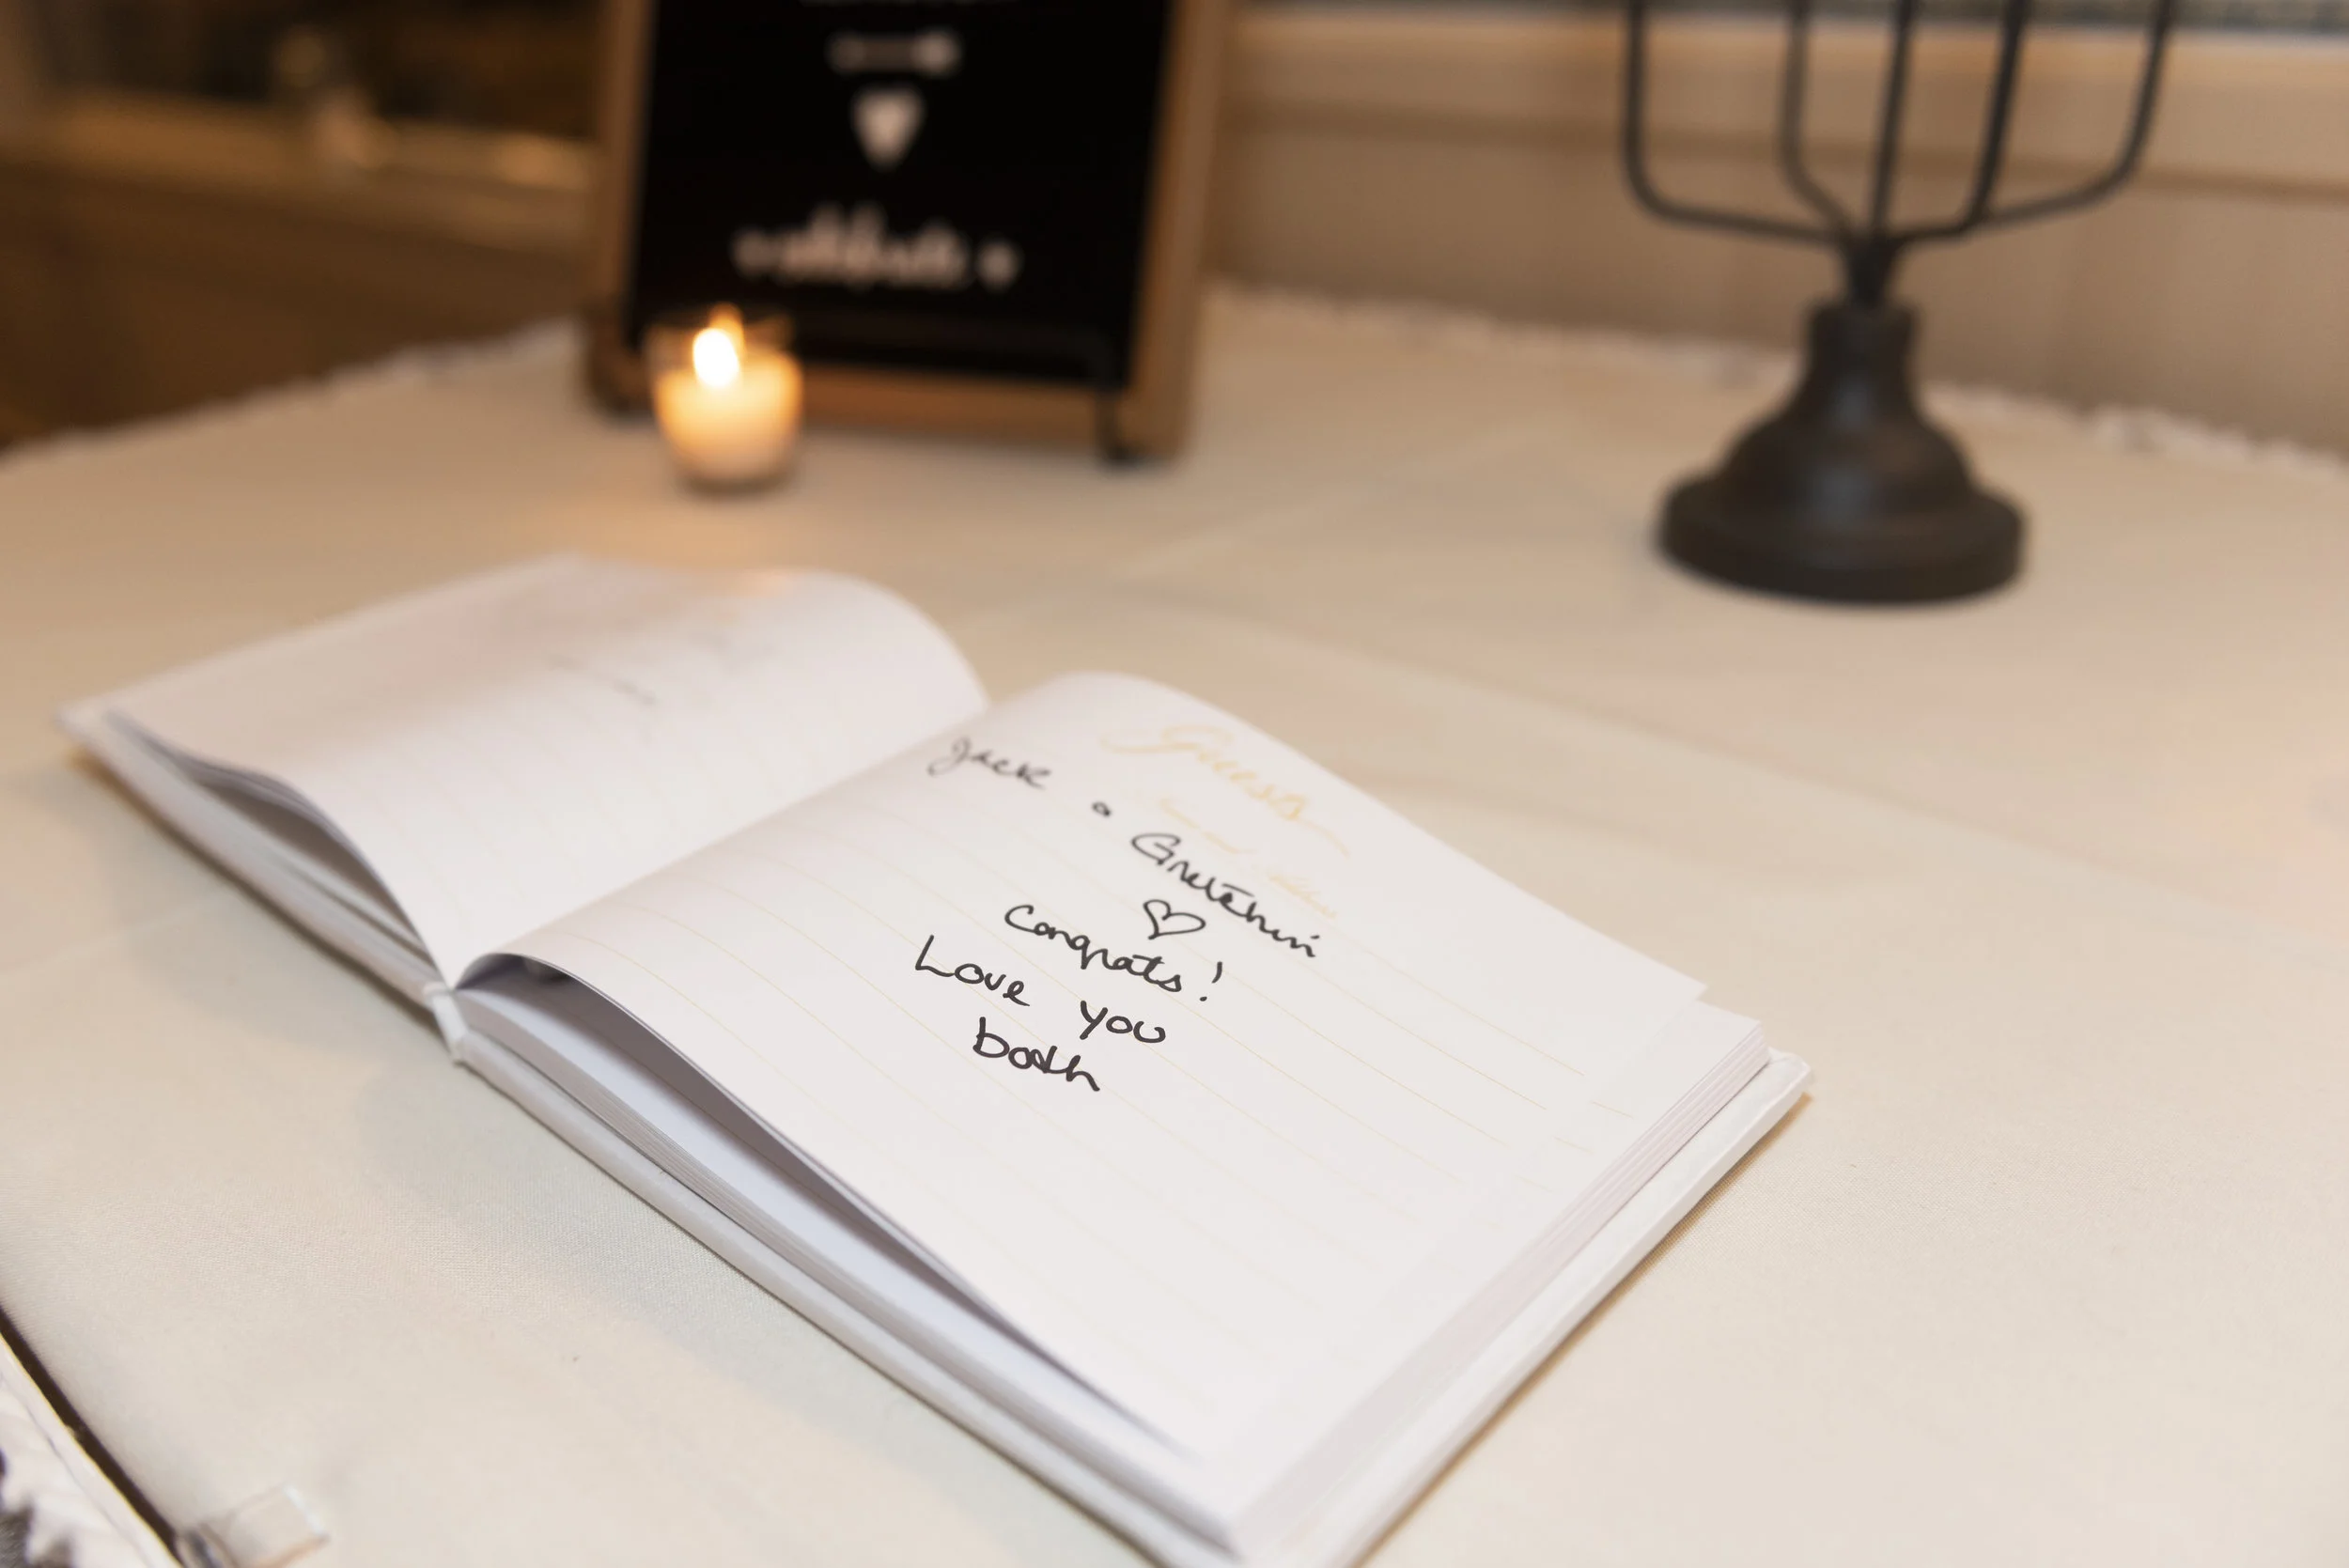 Guests
Jack & Gretchen
♡
Congrats!
Love you
both
celebrate